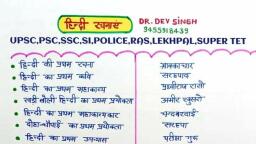 हिन्दी रचनाएं
DR. DEV SINGH
9455918439
UPSC,PSC,SSC,SI,POLICE,ROS,LEKHPAL,SUPER TET
हिन्दी की प्रथम रचना
श्रावकाचार
हिन्दी का प्रथम कवि
सरहपाद
हिन्दी का प्रथम महाकाव्य
पृथ्वीराज रासो
खड़ी बोली हिन्दी का प्रथम प्रयोक्ता
अमीर खुसरो
हिन्दी का प्रथम महाकाव्यकार
चन्दबरदाई
दोहा-चौपाई का प्रथम प्रयोक्ता
सरहपाद
हिन्दी का प्रथम उपन्यास
परीक्षा गुरु